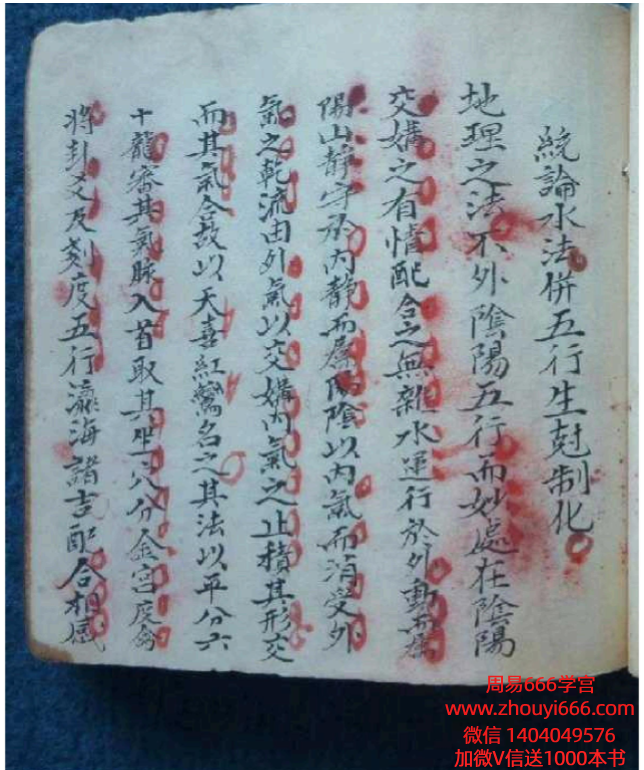 統論水法併五行生尅制化
地理之法不外陰陽五行而妙處在陰陽
交媾之有情配合之無雜水運行於外動而屬
陽山靜守於內靜而屬陰以內氣而消受外
氣之乾流由外氣以交媾內氣之止積其形交
而其氣合故以天喜紅鸞名之其法以平分六
十龍審其氣脉入首取其坐穴分金宮度
將卦爻及刻度五行瀛海諸吉配合相感
周易666学宫
www.zhouyi666.com
微信 1404049576
加微V信送1000本书